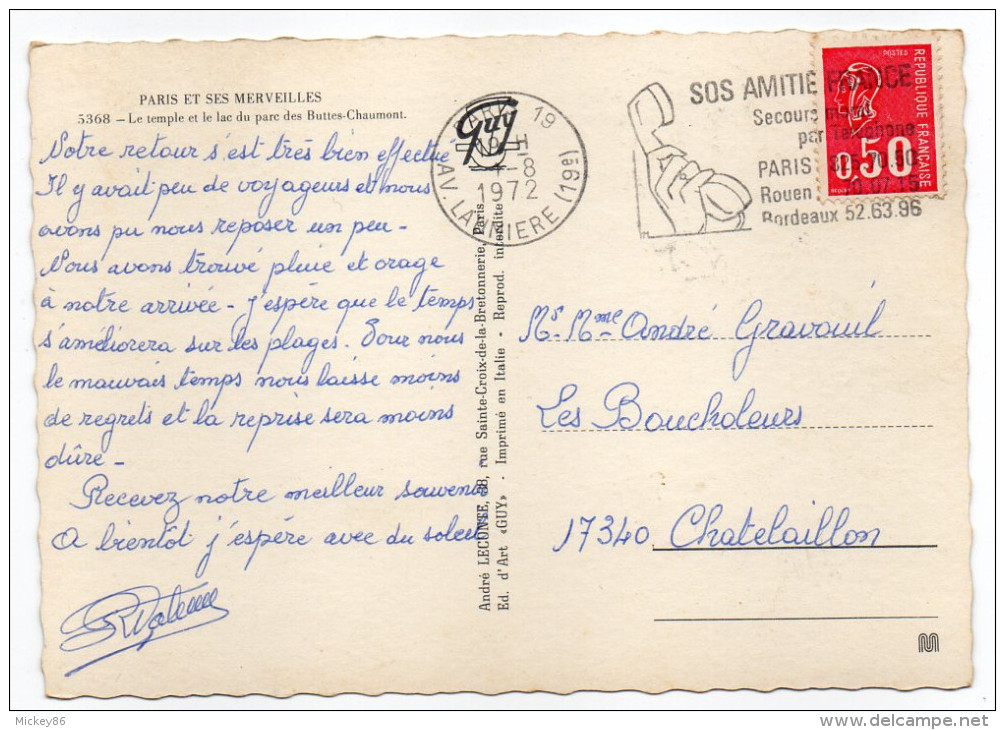 PARIS ET SES MERVEILLES
5368 - Le temple et le lac du parc des Buttes-Chaumont.
Notre retour s'est très bien effectue
Il y avait peu de voyageurs et nous
avons pu nous reposer un peu -
Nous avons trouvé pluie et orage
à notre arrivée - J'espère que le temps
s'améliorera sur les plages. Pour nous
le mauvais temps nous laisse moins
de regrets et la reprise sera moins
dûre -
Recevez notre meilleur souvenir
A bientôt j'espère avec du soleil
André LECONTE, 38, rue Sainte-Croix-de-la-Bretonnerie, Paris
Ed. d'Art «GUY» - Imprimé en Italie - Reprod. interdite
Guy
PARIS 19
-8
1972
AV. LAUMIERE (19è)
SOS AMITIE FRANCE
Secours moral
par Téléphone
PARIS 825.70.50
Rouen
Bordeaux 52.63.96
POSTES
REPUBLIQUE FRANÇAISE
0,50
Mr. Mme André Gravouil
Les Boucholeurs
17340 Chatelaillon
Mickey86
www.delcampe.net